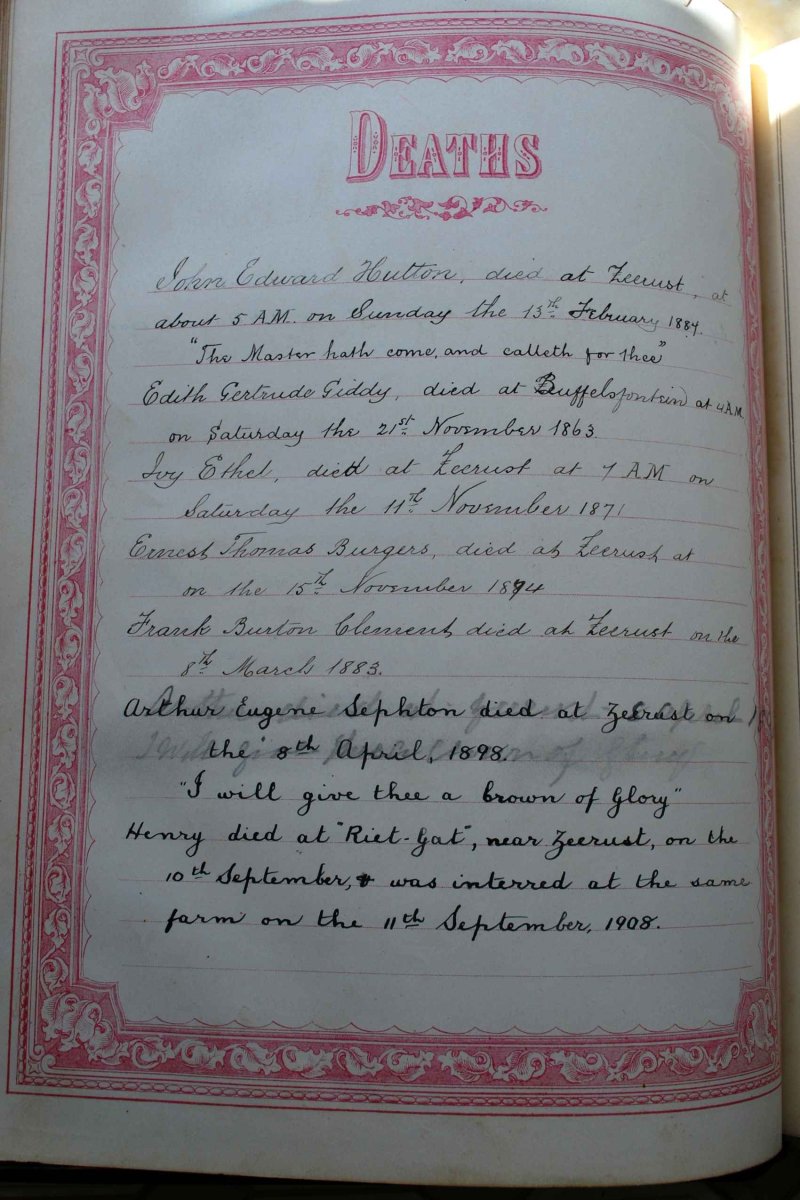 DEATHS
John Edward Hutton, died at Zeerust, at
about 5 A.M. on Sunday the 13th February 1884.
"The Master hath come, and calleth for thee"
Edith Gertrude Giddy, died at Buffelsfontein at 4 A.M.
on Saturday the 21st November 1863.
Ivy Ethel, died at Zeerust at 7 AM on
Saturday the 11th November 1871
Ernest Thomas Burgers, died at Zeerust at
on the 15th November 1874
Frank Burton Clement died at Zeerust on the
8th March 1883.
Arthur Eugene Sephton died at Zeerust on
the 8th April, 1898.
"I will give thee a brown of Glory"
Henry died at "Riet-Gat", near Zeerust, on the
10th September, & was interred at the same
farm on the 11th September, 1908.